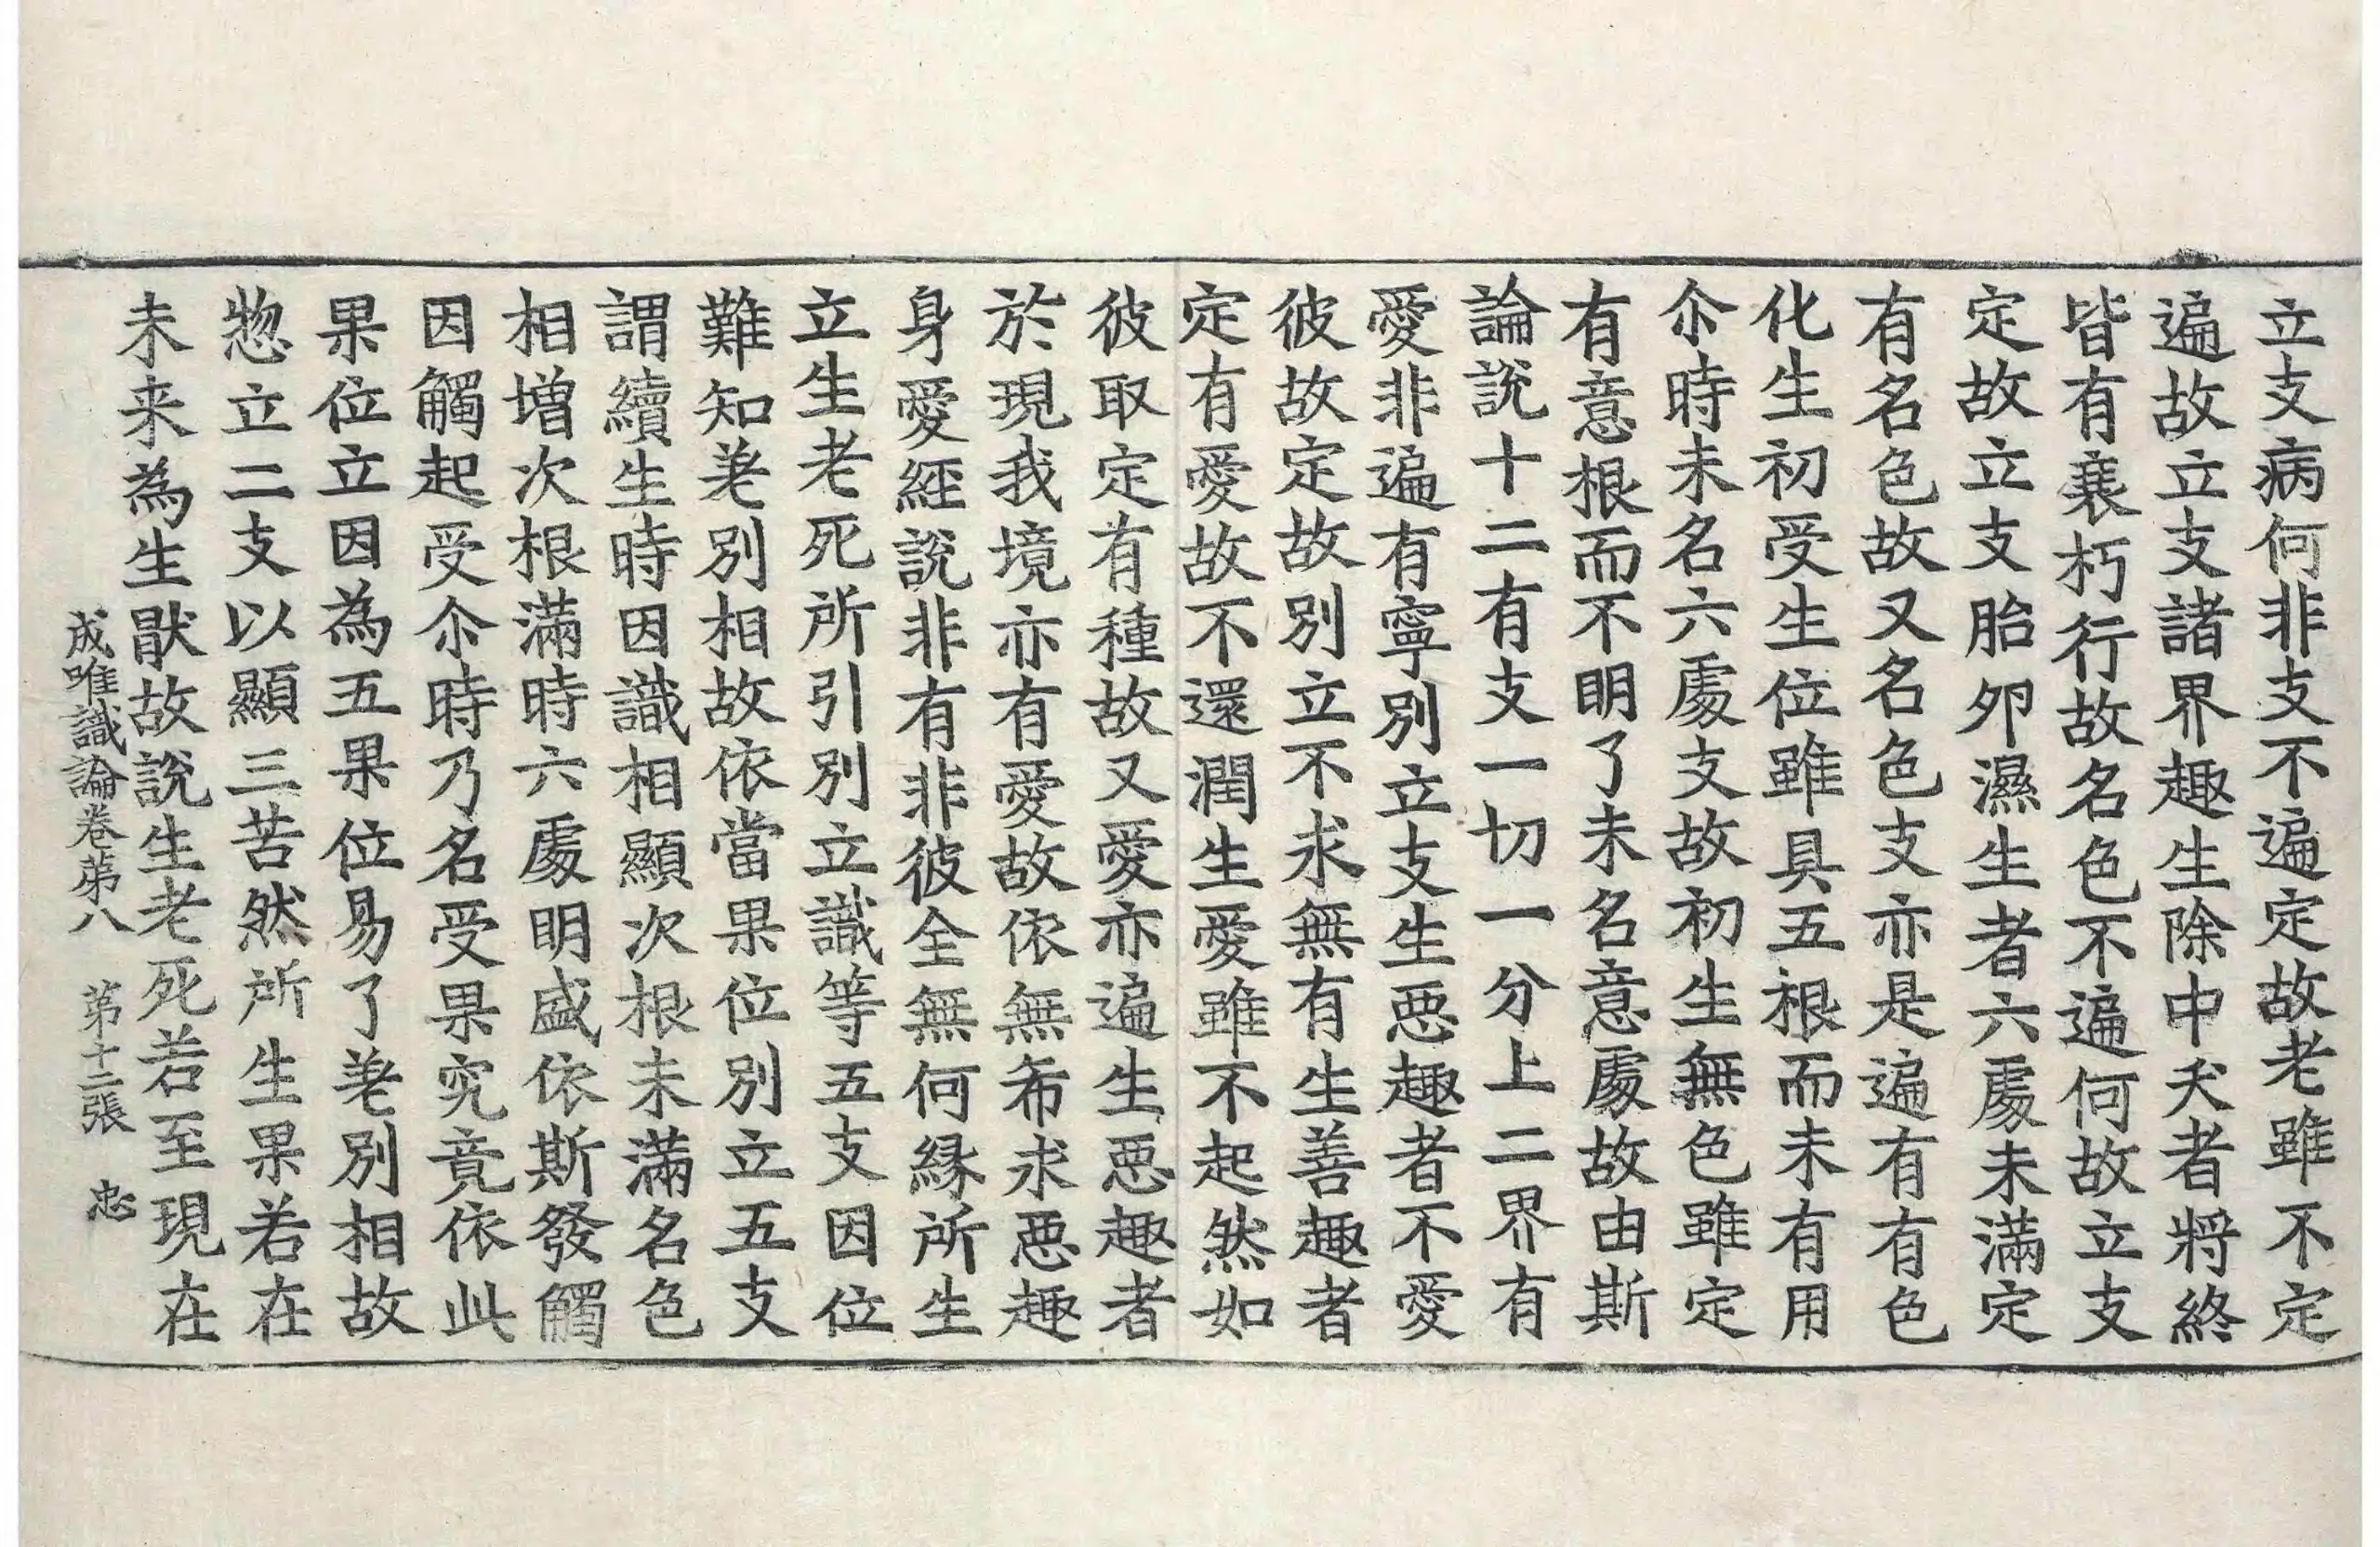 立支病何非支不遍定故老雖不定
遍故立支諸界趣生除中夭者將終
皆有衰朽行故名色不遍何故立支
定故立支胎卵濕生者六處未滿定
有名色故又名色支亦是遍有有色
化生初受生位雖具五根而未有用
尒時未名六處支故初生無色雖定
有意根而不明了未名意處故由斯
論說十二有支一切一分上二界有
愛非遍有寧別立支生惡趣者不愛
彼故定故別立不求無有生善趣者
定有愛故不還潤生愛雖不起然如
彼取定有種故又愛亦遍生惡趣者
於現我境亦有愛故依無希求惡趣
身愛經說非有非彼全無何緣所生
立生老死所引別立識等五支因位
難知差別相故依當果位別立五支
謂續生時因識相顯次根未滿名色
相增次根滿時六處明盛依斯發觸
因觸起受尒時乃名受果究竟依此
果位立因為五果位易了差別相故
惣立二支以顯三苦然所生果若在
未来為生猒故說生老死若至現在
成唯識論卷苐八 苐十二張 忠